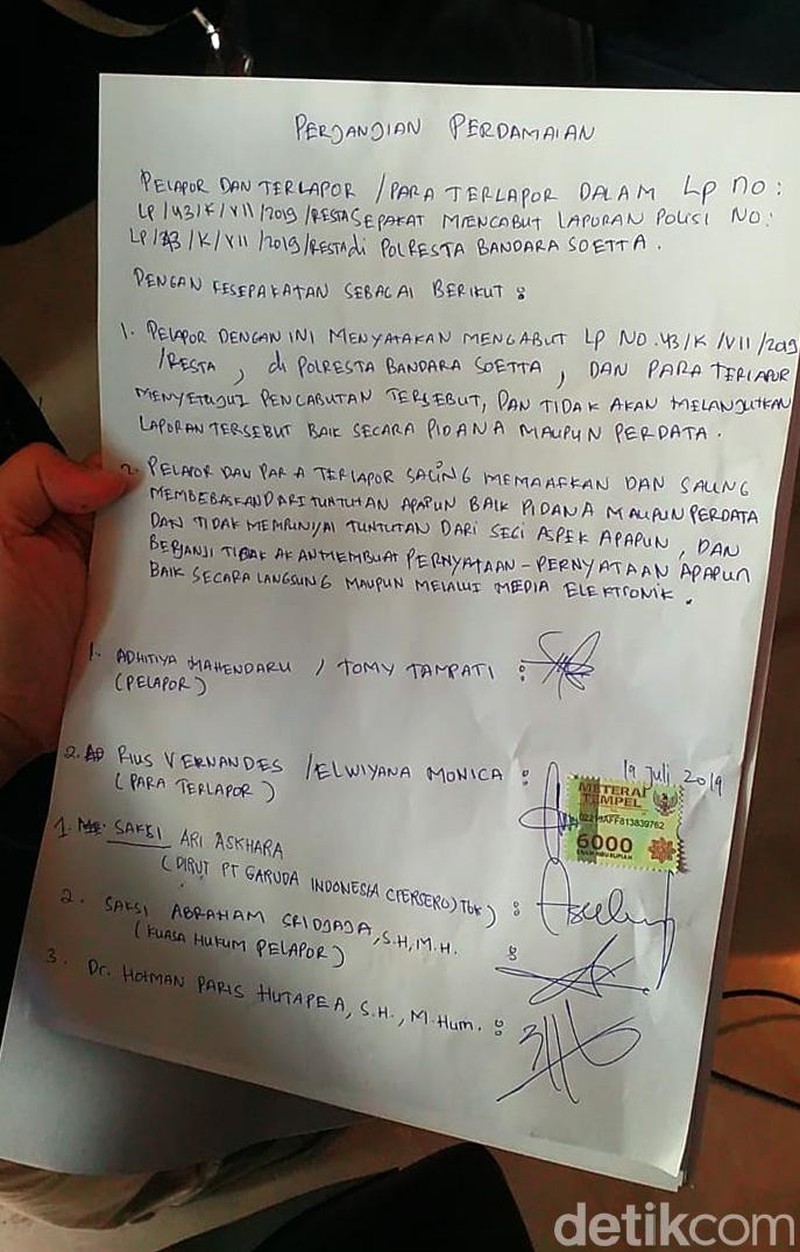 PERJANJIAN PERDAMAIAN
PELAPOR DAN TERLAPOR /PARA TERLAPOR DALAM LP NO:
LP/43/K/VII/2019/RESTA SEPAKAT MENCABUT LAPORAN POLISI NO:
LP/43/K/VII/2019/RESTA di POLRESTA BANDARA SOETTA.
DENGAN KESEPAKATAN SEBAGAI BERIKUT :
1. PELAPOR DENGAN INI MENYATAKAN MENCABUT LP NO.43/K/VII/2019
/RESTA, di POLRESTA BANDARA SOETTA, DAN PARA TERLAPOR
MENYETUJUI PENCABUTAN TERSEBUT, DAN TIDAK AKAN MELANJUTKAN
LAPORAN TERSEBUT BAIK SECARA PIDANA MAUPUN PERDATA.
2. PELAPOR DAN PARA TERLAPOR SALING MEMAAFKAN DAN SALING
MEMBEBASKAN DARI TUNTUTAN APAPUN BAIK PIDANA MAUPUN PERDATA
DAN TIDAK MEMPUNYAI TUNTUTAN DARI SEGI ASPEK APAPUN, DAN
BERJANJI TIDAK AKAN MEMBUAT PERNYATAAN-PERNYATAAN APAPUN
BAIK SECARA LANGSUNG MAUPUN MELALUI MEDIA ELEKTRONIK.
1. ADHITIYA MAHENDARU / TOMY TAMPATI :
(PELAPOR)
2. RIUS VERNANDES /ELWIYANA MONICA :
(PARA TERLAPOR)
19 Juli 2019
METERAI
TEMPEL
6000
ENAM RIBU RUPIAH
1. SAKSI ARI ASKHARA
(DIRUT PT GARUDA INDONESIA (PERSERO) Tbk) :
2. SAKSI ABRAHAM SRIDJAJA, S.H, M.H. :
(KUASA HUKUM PELAPOR)
3. Dr. HOTMAN PARIS HUTAPEA, S.H., M.Hum. :
detikcom